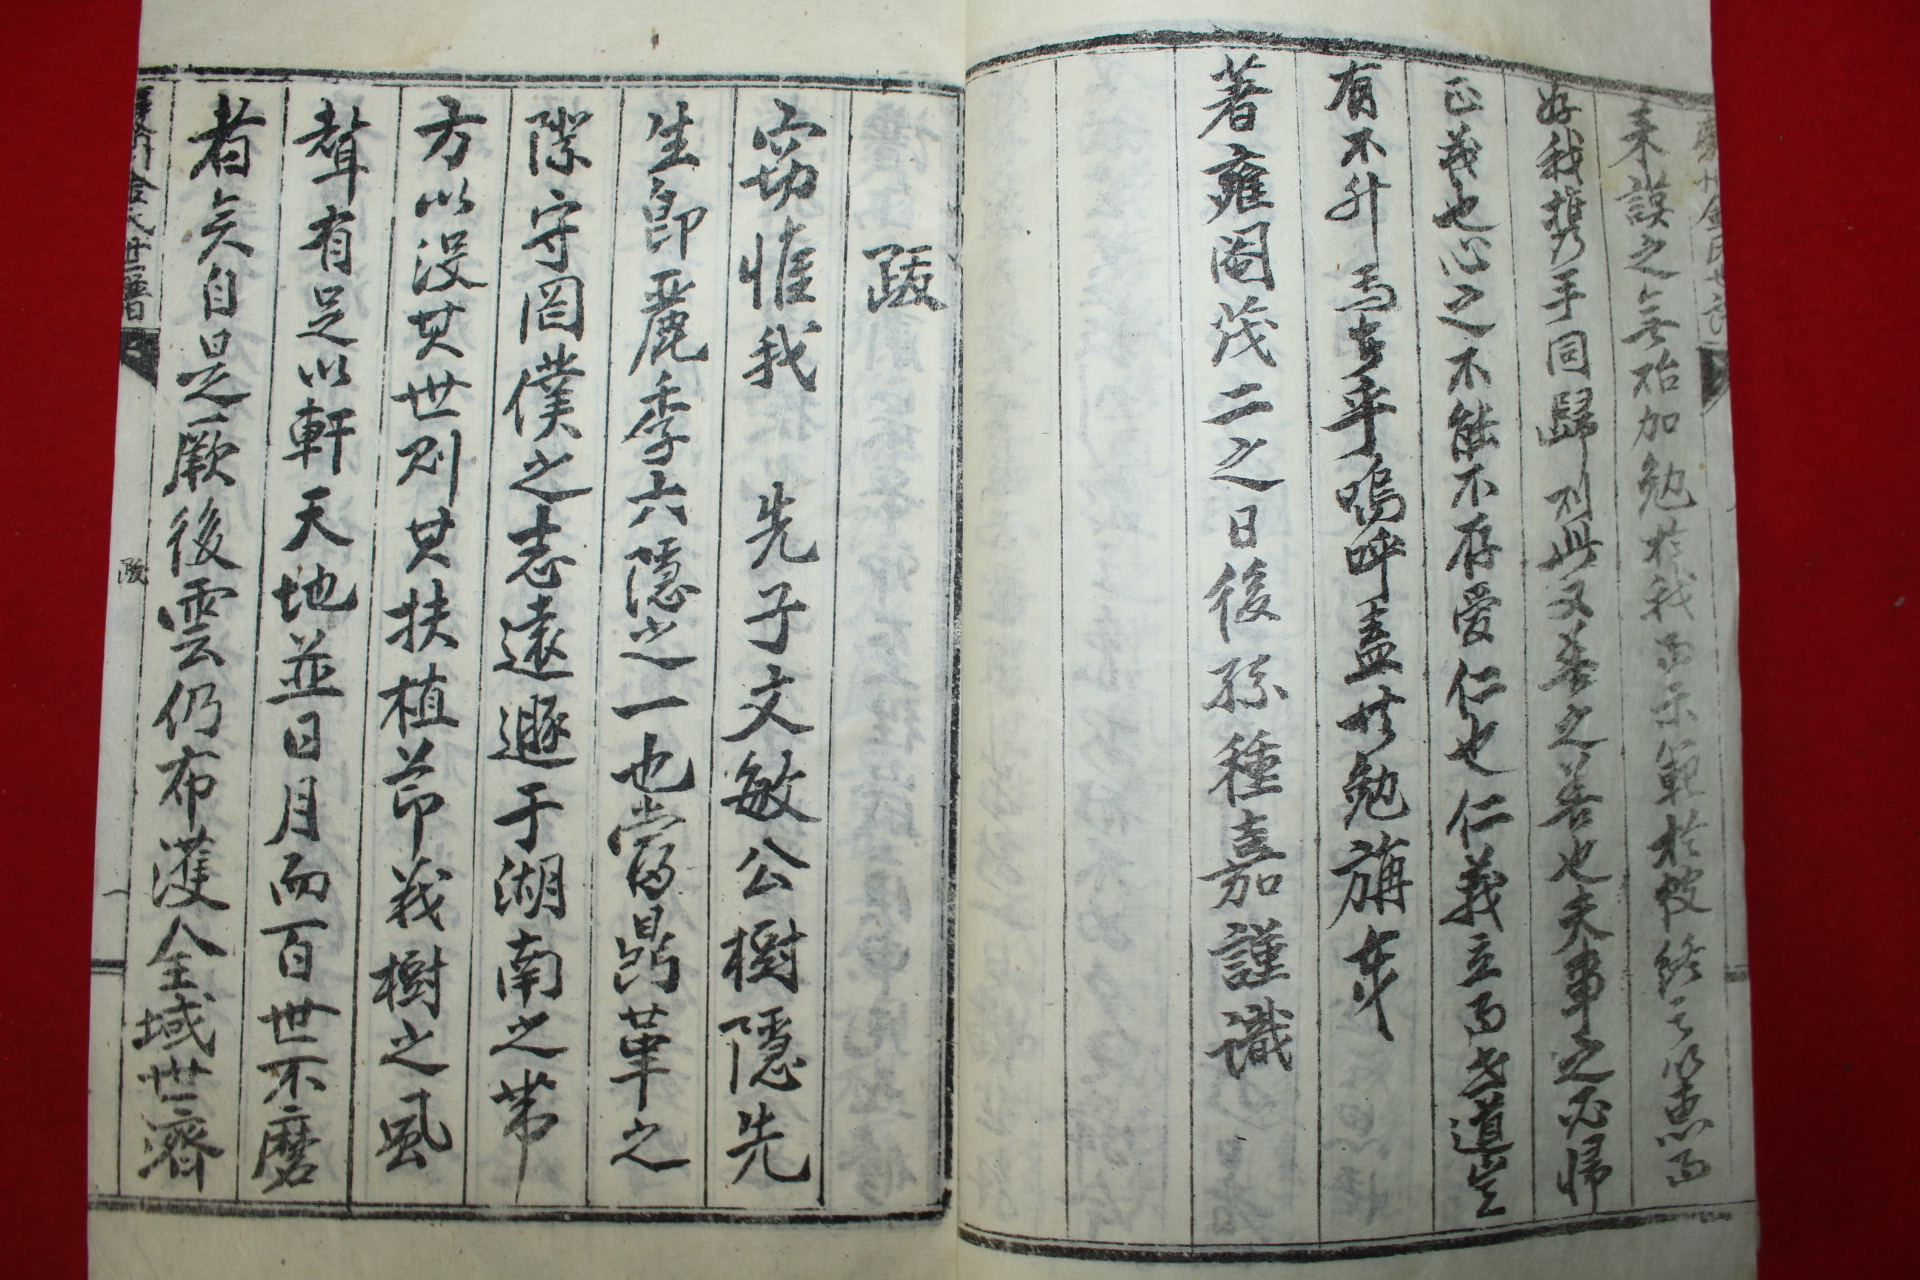 来謨之無殆加勉於我而示範於後終之以惠而
好我携手同歸則此又善之善也夫事之必歸
正義也心之不能不存愛仁也仁義立而世道豈
有不升焉者乎嗚呼盖共勉旃哉
著雍閹茂二之日後孫種嘉謹識
跋
竊惟我 先子文敏公樹隱先
生卽麗季六隱之一也當鼎革之
際守罔僕之志遠遯于湖南之帶
方以沒其世則其扶植節義樹之風
聲有足以軒天地並日月而百世不磨
者矣自是厥後雲仍布濩全域世濟
金氏世譜
跋
一